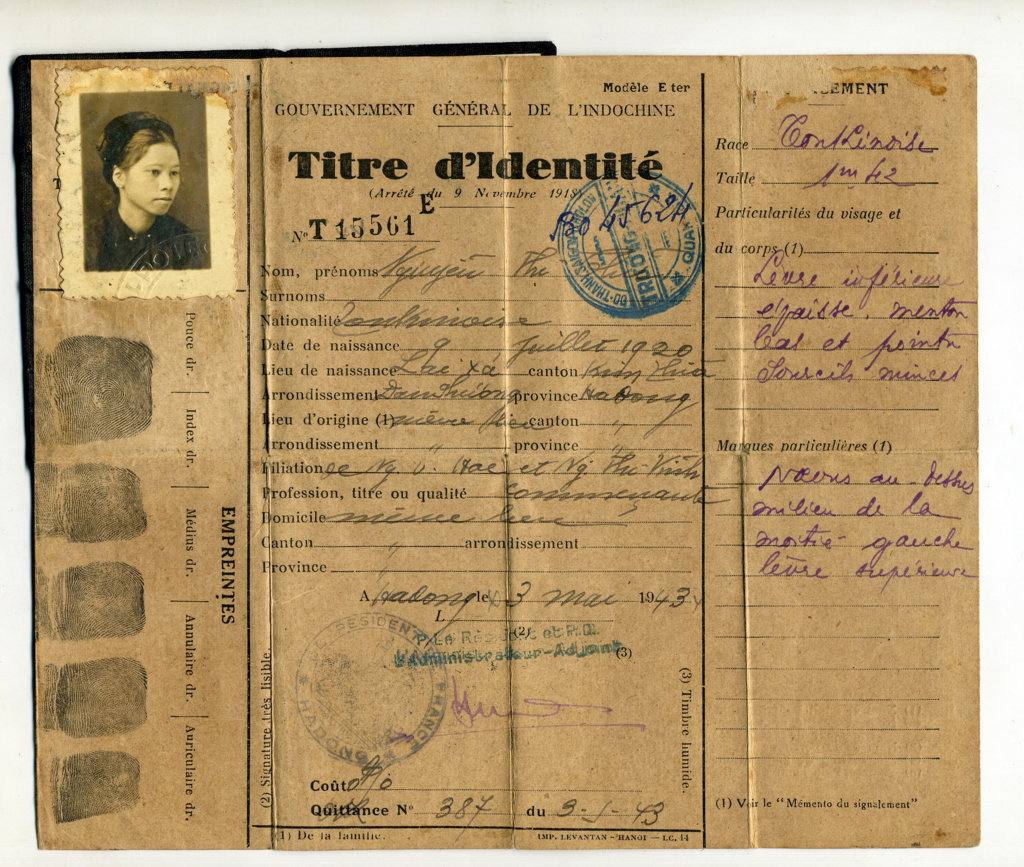 Modèle E ter
GOUVERNEMENT GÉNÉRAL DE L'INDOCHINE
Titre d'Identité
(Arrêté du 9 Novembre 1918)
E
N° T 15561
Nom, prénoms Nguyễn Thị
Surnoms
Nationalité Tonkinoise
Date de naissance 9 Juillet 1920
Lieu de naissance Lac Xá canton
Arrondissement Dan Phuong province Hadong
Lieu d'origine (1) même lieu canton "
Arrondissement " province "
Filiation de Ng. V. et Ng. Thi
Profession, titre ou qualité commerçante
Domicile même lieu
Canton " arrondissement
Province "
A Hadong le 3 mai 1943
L (2)
P. Le Résident et P.D.
L'Administrateur-Adjoint
(3)
RESIDENT
FRANCE
HADONG
Coût
Quittance N° 387 du 3-5-43
(1) De la famille.
IMP. LEVANTAN - HANOI — LC. 14
(2) Signature très lisible.
(3) Timbre humide.
EMPREINTES
Pouce dr.
Index dr.
Médius dr.
Annulaire dr.
Auriculaire dr.
Race Tonkinoise
Taille 1m 42
Particularités du visage et
du corps (1)
Lèvre inférieure
épaisse, menton
bas et pointu
Sourcils minces
Marques particulières (1)
Nævus au-dessus
milieu de la
moitié gauche
lèvre supérieure
(1) Voir le "Mémento du signalement"